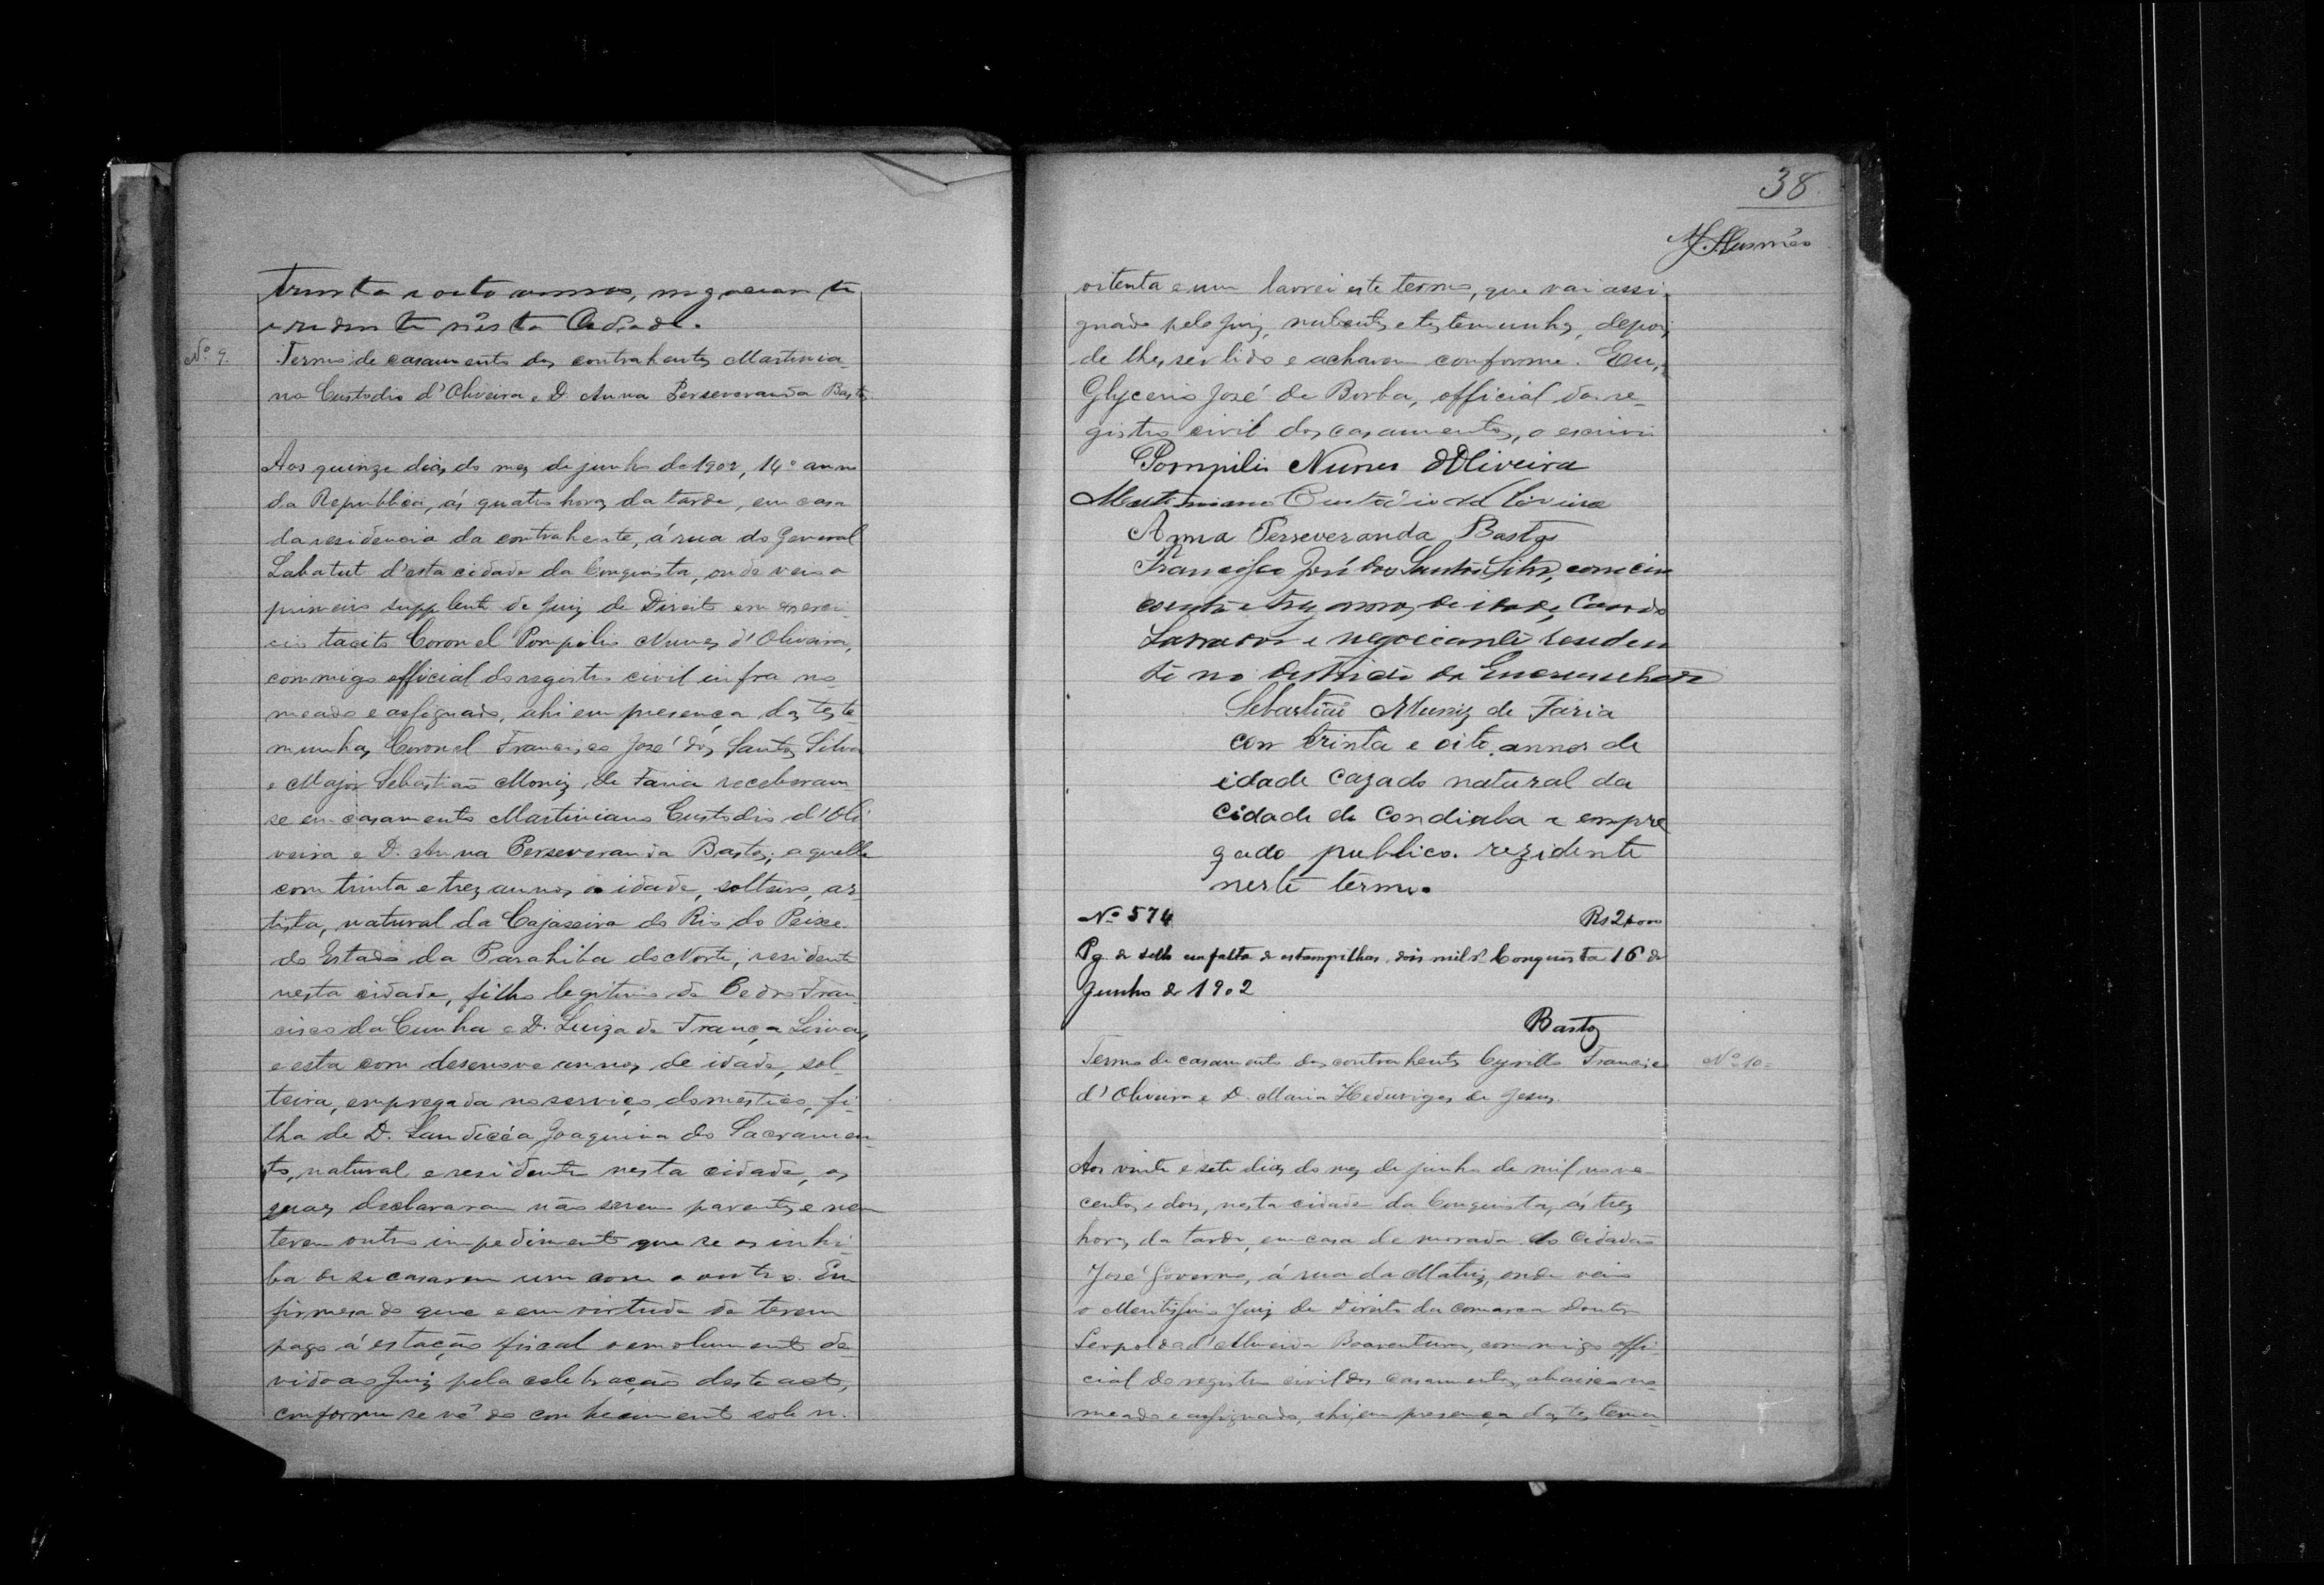 trinta e oito annos, negociante
e residente n'esta Cidade.
Nº 9.
Termo de casamento dos contrahentes Martinia
no Custodio d'Oliveira e D. Anna Perseveranda Bastos.
Aos quinze dias do mez de junho de 1902, 14º anno
da Republica, ás quatro horas da tarde, em casa
da residencia da contrahente, á rua do General
Labatut d'esta cidade da Conquista, onde veio o
primeiro supplente de Juiz de Direito em exerci
cio tacito Coronel Pompilio Nunes d'Oliveira,
commigo official do registro civil infra no
meado e assignado, ahi em presença das teste
munhas Coronel Francisco José dos Santos Silva
e Major Sebastião Moniz de Faria receberam-
se em casamento Martiniano Custodio d'Oli
veira e D. Anna Perseveranda Bastos; aquelle
com trinta e trez annos de idade, solteiro, ar-
tista, natural da Cajaseira do Rio do Peixe
do Estado da Parahiba do Norte, residente
nesta cidade, filho legitimo de Pedro Fran-
cisco da Cunha e D. Luiza de França
e esta com desenove annos de idade, sol-
teira, empregada no serviço domestico, fi-
lha de D. Laudicéa Joaquina do Sacramen-
to, natural e residente nesta cidade, os
quaes declararam não serem parentes e nem
terem outro impedimento que se os inhi-
ba de se casarem um com o outro. Em
firmesa do que e em virtude de terem
pago á estação fiscal o emolumento de-
vido ao Juiz pela celebração deste acto,
conforme se vê do conhecimento sob n.
38
oitenta e um lavrei este termo, que vai assi-
gnado pelo Juiz, nubentes e testemunhas, depois
de lhes ser lido e acharem conforme. Eu,
Glycerio José de Borba, official do re-
gistro civil dos casamentos, o escrivi
Pompilio Nunes d'Oliveira
Martiniano Custodio d'Oliveira
Anna Perseveranda Bastos
Francisco José dos Santos Silva, com cin
coenta e trez annos de idade, Casado
Lavrador e negociante residen
te no districto da Encruzilhada
Sebastião Muniz de Faria
con trinta e oito annos de
idade cazado natural da
Cidade de Condeuba e empre
gado publico. rezidente
neste têrmo.
Nº 574 Rs 2$000
Pg. de sello em falta de estampilhas, dois mil rs. Conquista 16 de
Junho de 1902
Bastos
Termo de casamento dos contrahentes Cyrillo Francisco
d'Oliveira e D. Maria Heduviges de Jesus.
Nº 10
Aos vinte e sete dias do mez de junho de mil nove
centos e dois, nesta cidade da Conquista, ás trez
horas da tarde, em casa de morada do Cidadão
José Governo, á rua da Matriz, onde veio
o Meritissimo Juiz de Direito da comarca Doutor
Leopoldo d'Almeida Boaventura, commigo offi-
cial do registro civil dos casamentos, abaixo no-
meado e assignado, ahi, em presença das testemu-